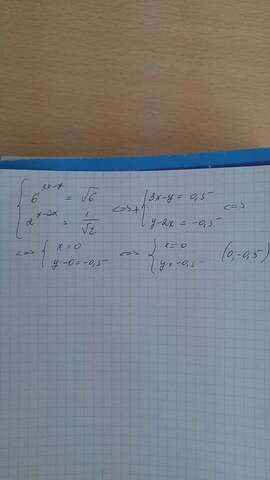 { 6^{3x-y} = √6
{ 2^{y-2x} = 1/√2 <=> + { 3x-y = 0,5
{ y-2x = -0,5 <=>
<=> { x=0
{ y-0=-0,5 <=> { x=0
{ y=-0,5 (0;-0,5)